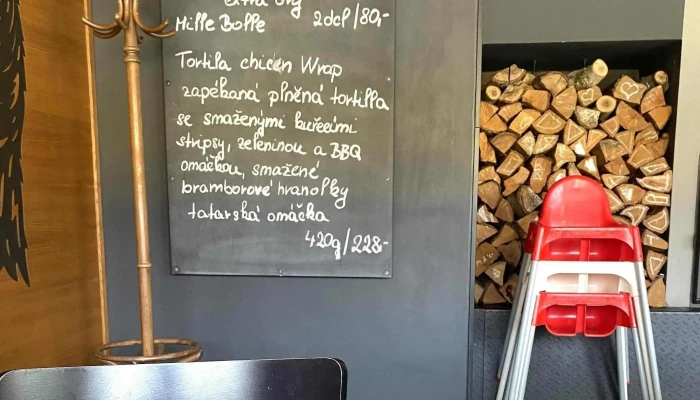 extra dry
Mille Bolle 2dcl/80,-
Tortila chicen Wrap
zapékaná plněná tortilla
se smaženými kuřecími
stripsy, zeleninou a BBQ
omáčkou, smažené
bramborové hranolky
tatarská omáčka
420g/228,-